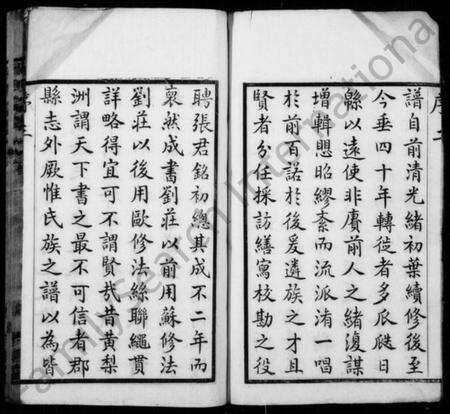 譜自前清光緒初葉續修後至
今垂四十年轉徙者多瓜瓞日
緜以遠使非賡前人之緒復謀
增輯愳昭繆紊而流派淆一唱
於前百諾於後爰遴族之才且
賢者分任採訪繕寫校勘之役
聘張君銘初總其成不二年而
裒然成書劉莊以前用蘇修法
劉莊以後用歐修法絲聯繩貫
詳略得宜可不謂賢哉昔黃梨
洲謂天下書之最不可信者郡
縣志外厥惟氏族之譜以為皆